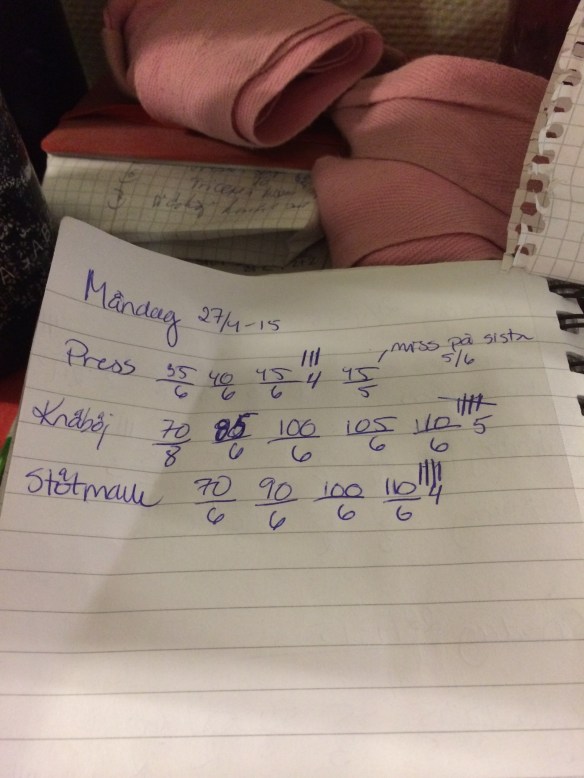 Måndag 27/4-15
Press 35/6 40/6 45/6 4 45/5 , miss på sista 5/6
Knäböj 70/8 85/6 100/6 105/6 110/6 5
Stötmark 70/6 90/6 100/6 110/6 4